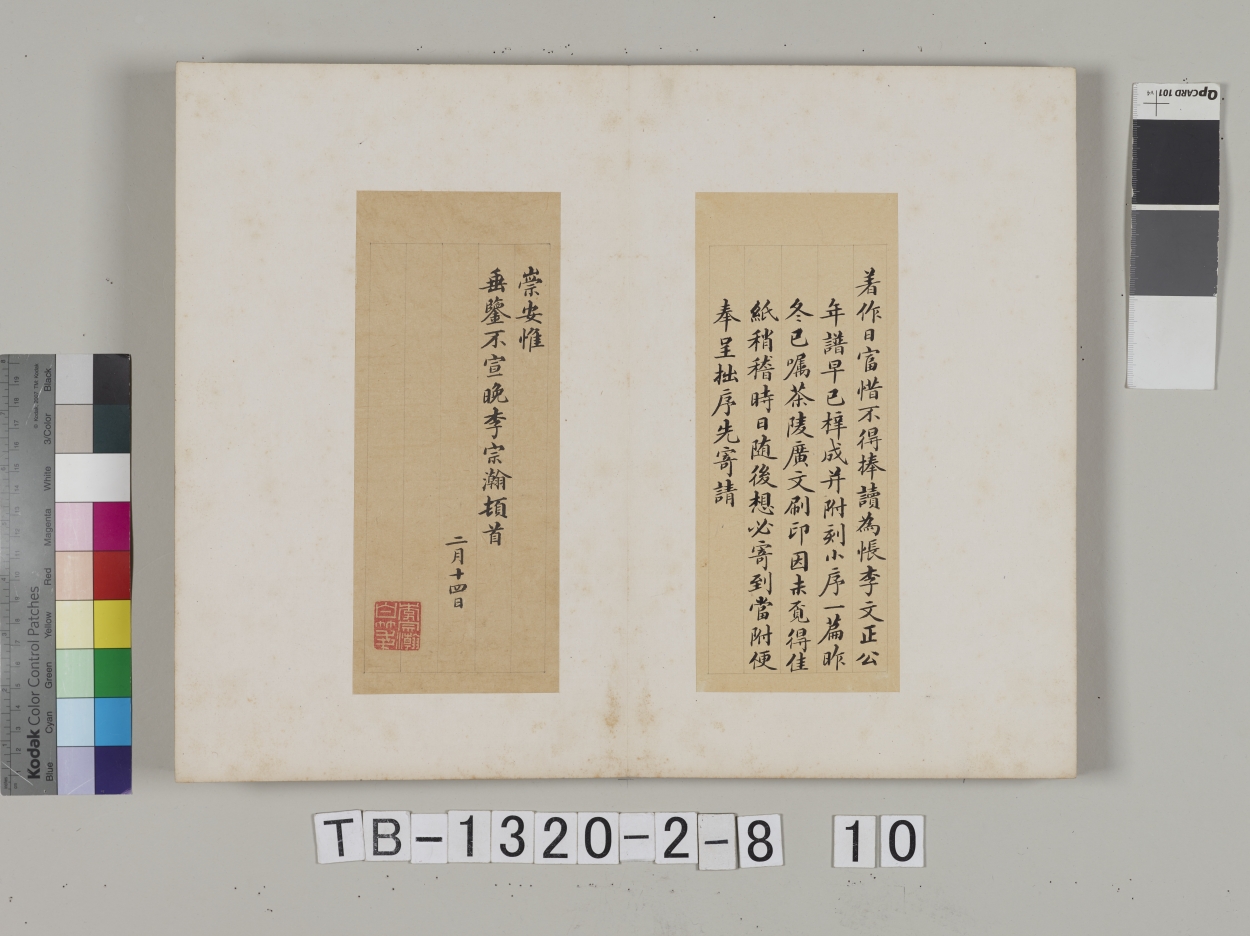 著作日富惜不得捧讀為悵李文正公
年譜早已梓成并附刻小序一篇昨
冬已囑茶陵廣文刷印因未覓得佳
紙稍稽時日隨後想必寄到當附便
奉呈拙序先寄請
崇安惟
垂鑒不宣晚李宗瀚頓首
二月十四日
李宗瀚
TB-1320-2-8 10
QPCARD 101 v4
Kodak Color Control Patches
© Kodak, 2007 TM: Kodak
Blue
Cyan
Green
Yellow
Red
Magenta
White
3/Color
Black